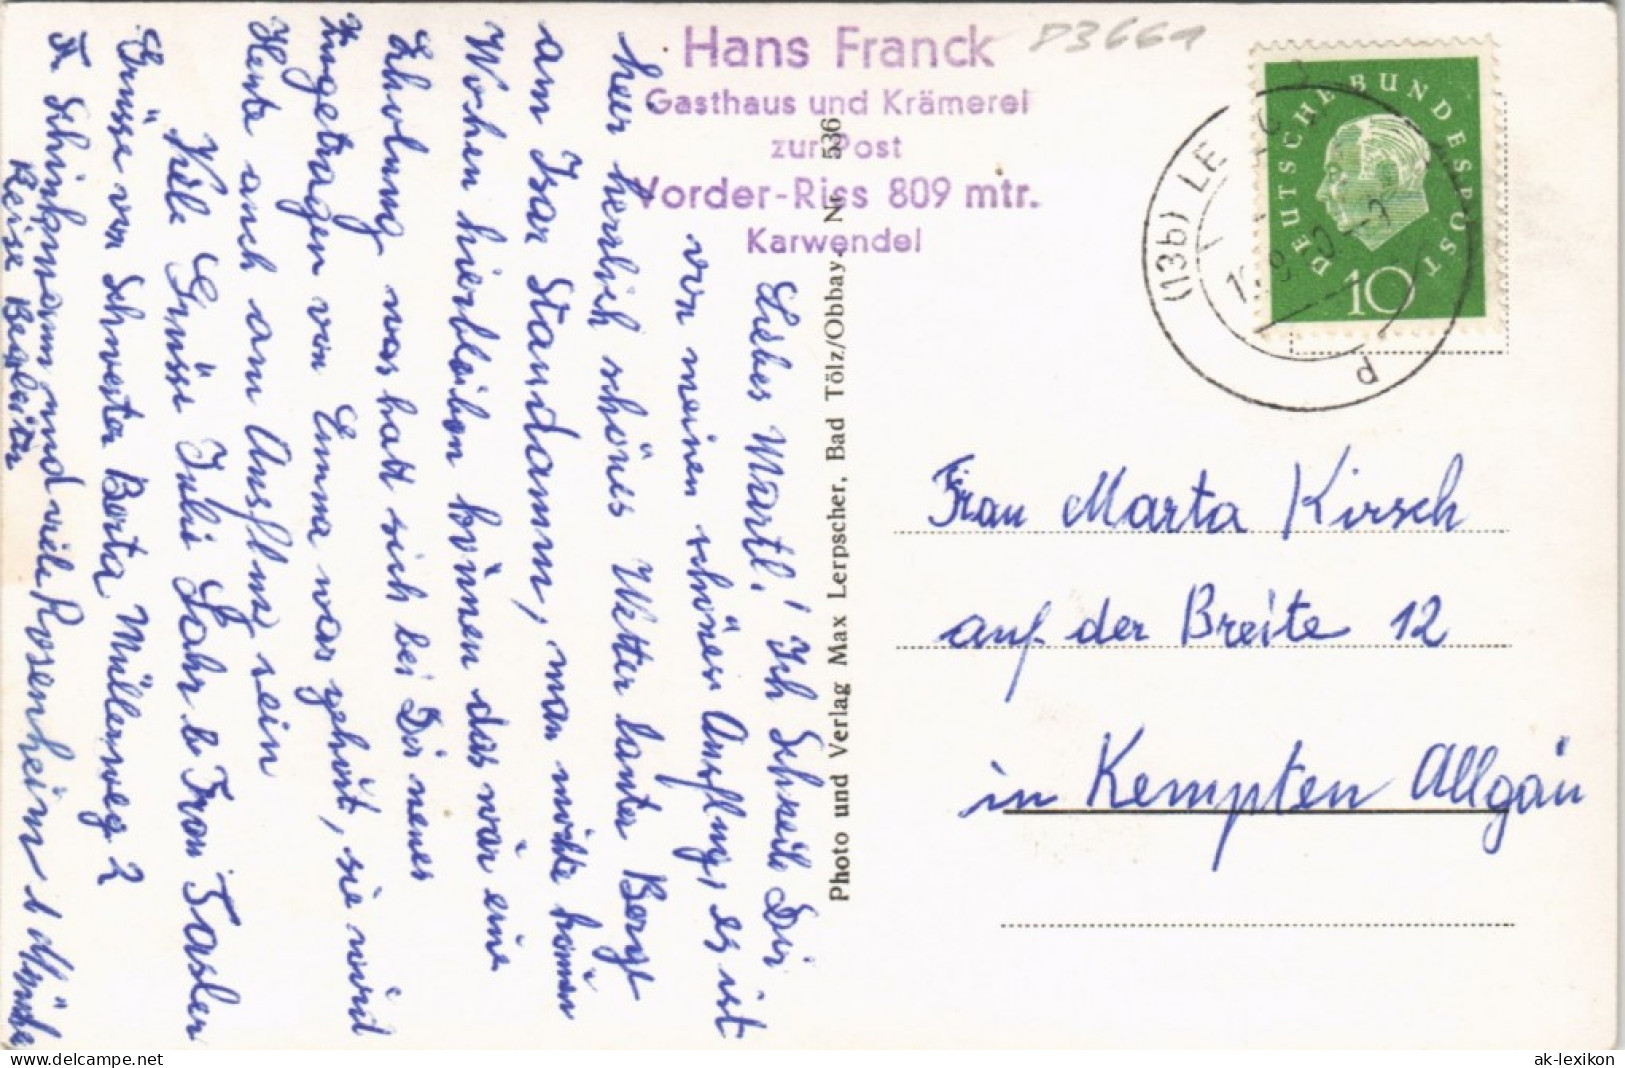 Hans Franck
Gasthaus und Krämerei
zur Post
Vorder-Riss 809 mtr.
Karwendel
83661
DEUTSCHE BUNDESPOST
10
(13b) LE
Liebes Martl! Ich Schreib Dir
von meinen schönen Ausflug, es ist
hier herrlich schönes Wetter lauter Berge
am Isar Staudamm, man möchte
Wochen hierbleiben können das wär eine
Erholung was hatt sich bei Dir neues
Zugetragen von Emma was gehört, sie wird
Heute auch am Ausflug sein
Viele Grüsse Julie Frau
Grüsse von Schwester Berta Müllerweg 2
F. Schinkmann und viele Rosenheim
Reise Begleiter
Photo und Verlag Max Lerpscher, Bad Tölz/Obbay. Nr. 536
Frau Marta Kirsch
auf der Breite 12
in Kempten Allgäu
delcampe-website
ak-lexikon